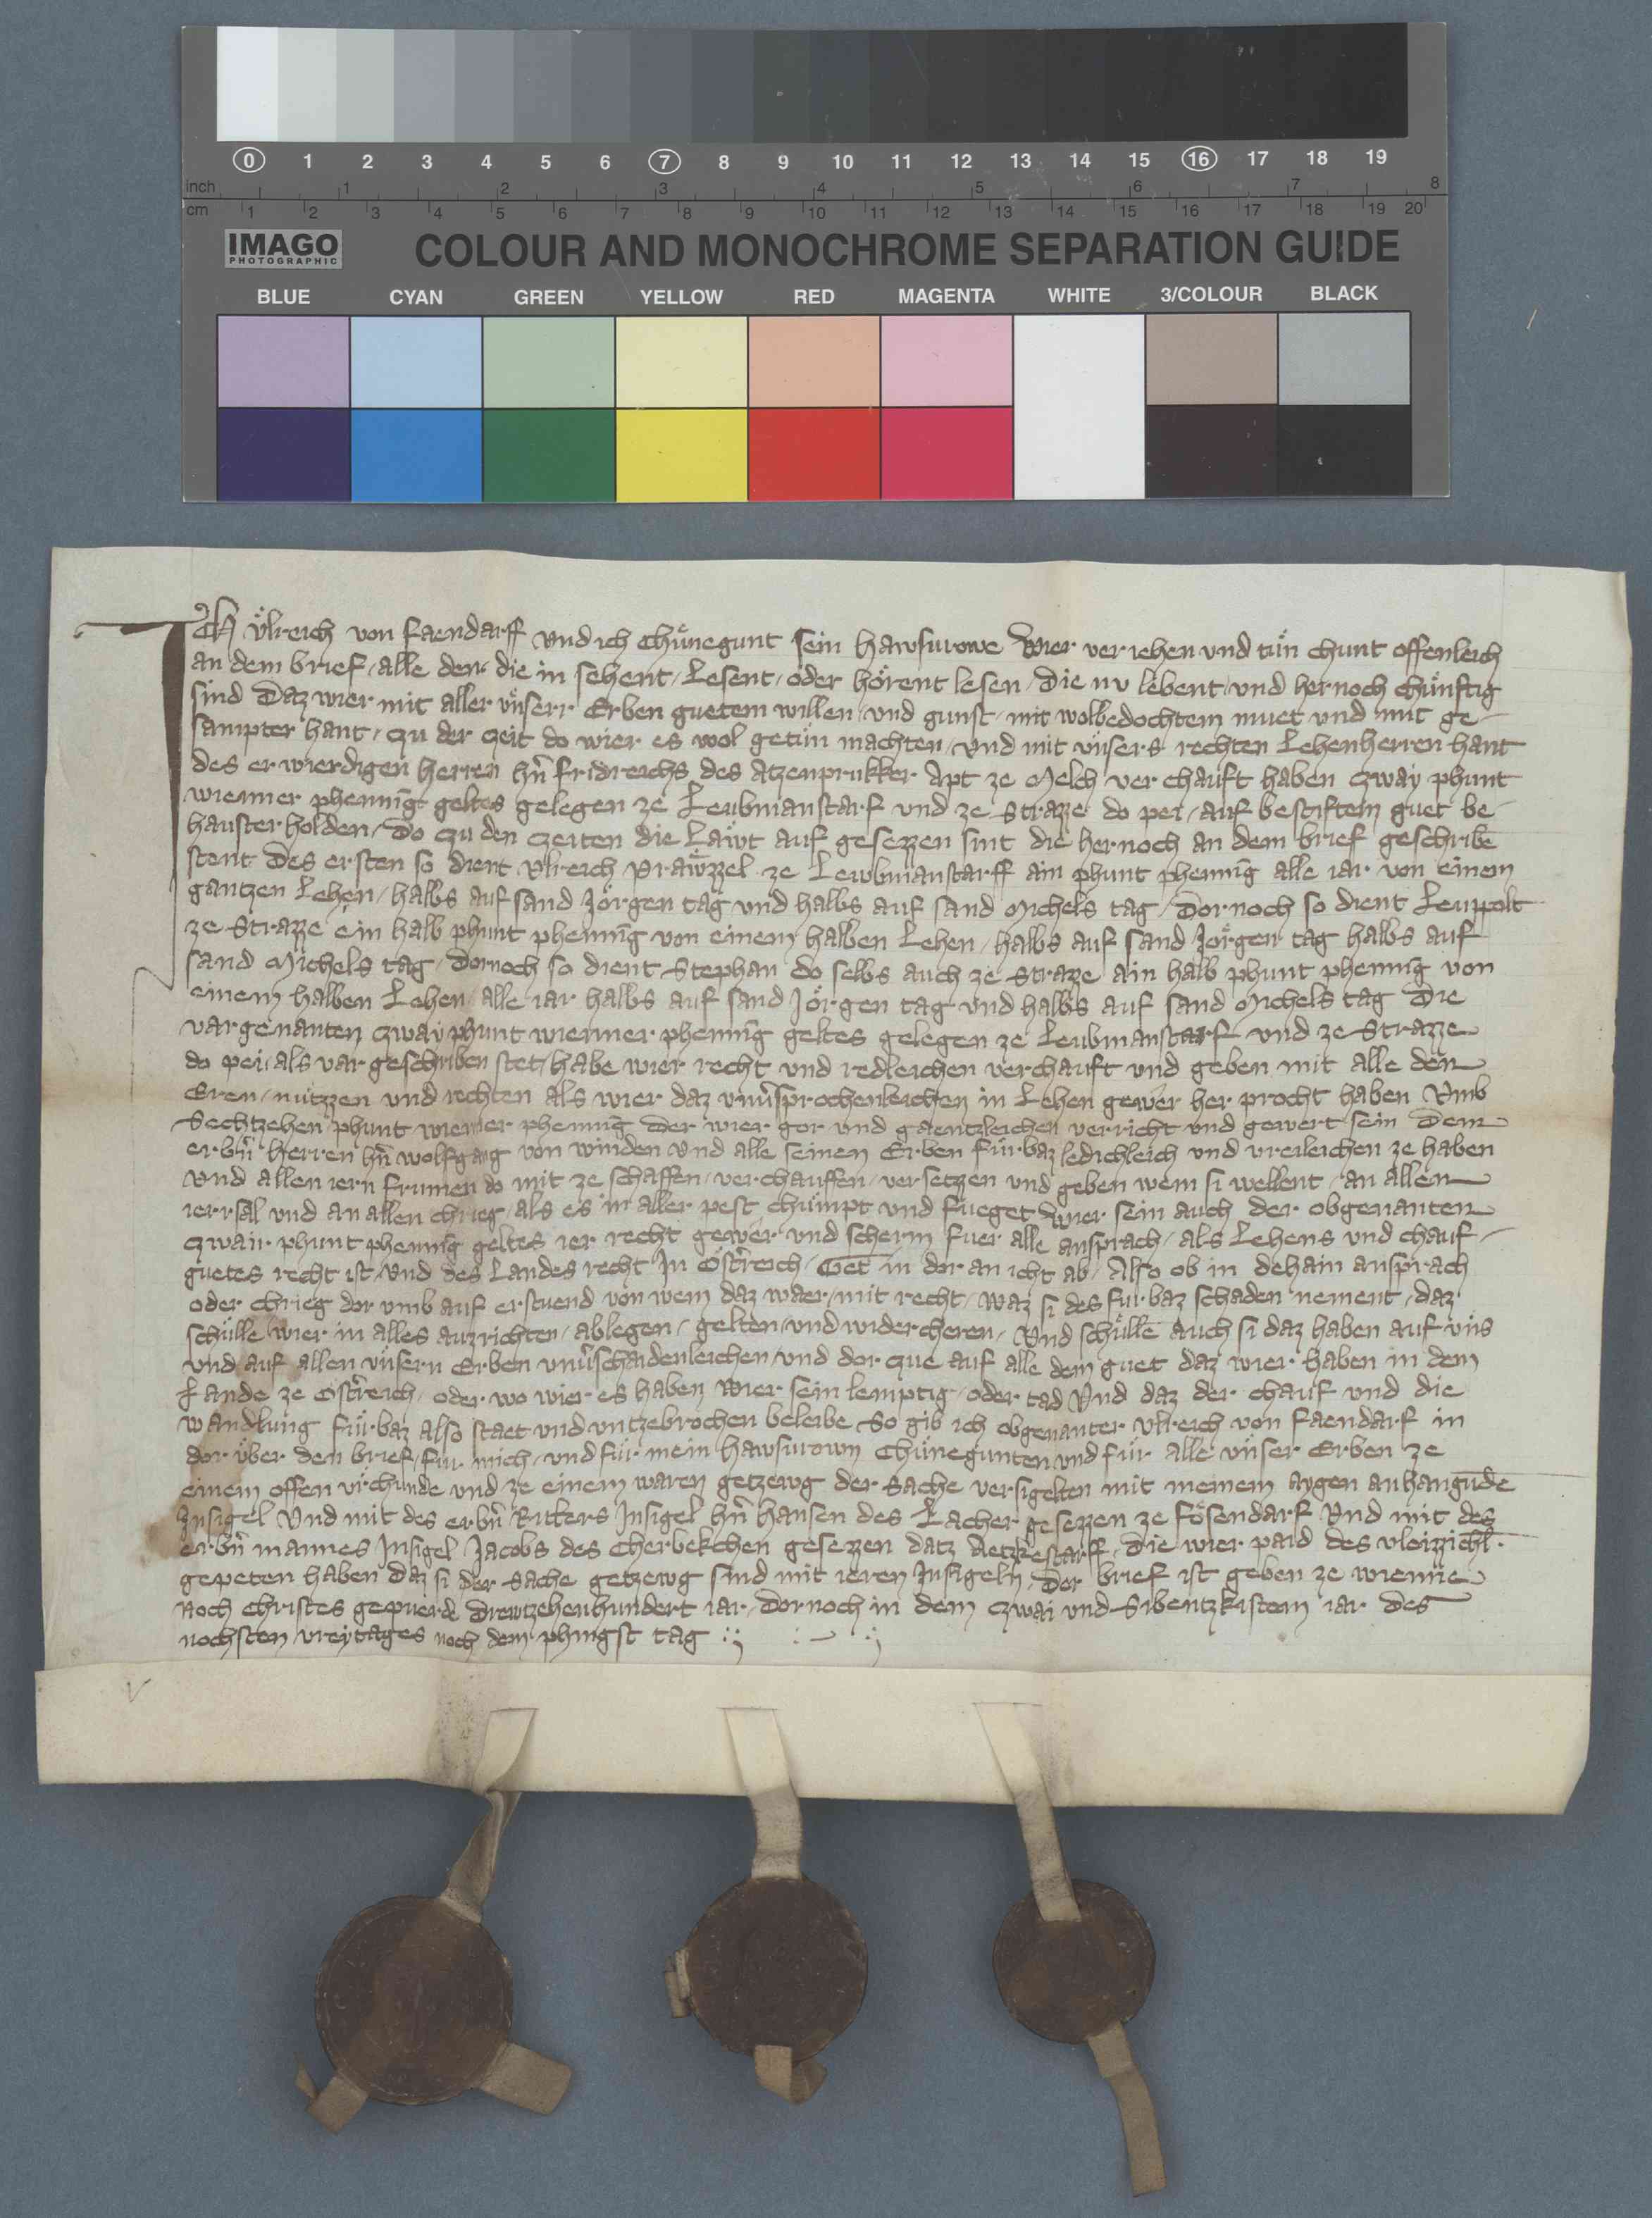 0 1 2 3 4 5 6 7 8 9 10 11 12 13 14 15 16 17 18 19
inch 1 2 3 4 5 6 7 8
cm 1 2 3 4 5 6 7 8 9 10 11 12 13 14 15 16 17 18 19 20
IMAGO PHOTOGRAPHIC COLOUR AND MONOCHROME SEPARATION GUIDE
BLUE CYAN GREEN YELLOW RED MAGENTA WHITE 3/COLOUR BLACK
Ich Ülreich von Faendarff und ich Chünegunt sein hawsvrowe Wier veriehen und tün chunt offenleich
an dem brief / alle den die in sehent / Lesent / oder hörent lesen / die nv lebent / und hernoch chünftig
sind Daz wier mit aller ünserr Erben guetem willen / und gunst / mit wolbedochtem muet und mit ge-
sampter hant / czu der czeit do wier es wol getün machten / und mit ünsers rechten Lehenherren hant
des erwierdigen herren hn̄ Fridreichs des Atzenprukker Apt ze Melch verchauft haben czway phunt
wienner phenning geltes gelegen ze Leubmanstarf und ze Strazze do pei / auf bestiftem guet be-
hauster holden / do czu den czeiten die Läwt auf gesezzen sint die hernoch an dem brief geschribē
stent des ersten so dient Ulreich Präwzzel ze Lewbmanstarff ain phunt phenning alle iar von einem
gantzen Lehen / halbs auf sand Jörgen tag und halbs auf sand Michels tag / Dornoch so dient Leuppolt
ze Strazze ein halb phunt phenning von einem halben Lehen / halbs auf sand Jörgen tag halbs auf
sand Michels tag / dornoch so dient Stephan do selbs auch ze Strazze ain halb phunt phenning von
einem halben Lehen / alle iar halbs auf sand Jörgen tag und halbs auf sand Michels tag Die
vargenanten czway phunt wienner phenning geltes gelegen ze Leubmanstarf und ze Strazze
do pei / als vargeschriben stet / habe wier recht und redleichen verchauft und geben mit alle den
Eren / nützzen und rechten als wier daz unv̄sprochenleichen in Lehen gewer her procht haben Umb
Sechtzehen phunt wienner phenning Der wier gor und gaentzleichen verricht und gewert sein Dem
erbn̄ herren hn̄ wolfgang von winden Und alle seinen Erben fürbaz ledichleich und vreileichen ze haben
und allen iern frumen do mit ze schaffen / verchauffen / versetzzen und geben wem si wellent / an allen
ierrsal und an allen chrieg / als es in aller pest chümpt und fueget Wier sein auch der obgenanten
czwair phunt phenning geltes ier recht gewer und scherm fuer alle ansprach / als Lehens und chauf-
guetes recht ist / und des Landes recht In Öst̄reich / Get in dor an icht ab / Also ob in dehain ansprach
oder chrieg dor umb auf erstuend von wem daz waer / mit recht / waz si des fürbaz schaden nement / daz
schülle wier in alles auzrichten / ablegen / gelten / und widercheren / Und schülle auch si daz haben auf üns
und auf allen ünsern Erben unv̄schaidenleichen / und dor czue auf alle dem guet daz wier haben in dem
Lande ze Öst̄reich / oder wo wier es haben wier sein lemptig / oder tad Und daz der chauf und die
wandlung fürbaz also staet und untzebrochen beleibe So gib ich obgenanter Ulreich von Faendarf in
dor über den brief / für mich / und für mein hawsvrown Chünegunten und für alle ünser Erben ze
einem offen ürchunde und ze einem waren getzewg der Sache versigelten mit meinem aygen anhangūde
Insigel Und mit des erbn̄ Ritters Insigel hn̄ Hansen des Lacher gesezzen ze Fösendarf Und mit des
erbn̄ mannes Insigel Jacobs des Cherbekchen gesezzen datz die wier paid des vleizzichl.
gepeten haben daz si der Sache getzewg sind mit ieren Insigeln / Der brief ist geben ze wienne
Noch Christes gepuerd Drewtzehenhundert iar / dornoch in dem czwai und Sibentzkistem iar des
nochsten vreytages noch dem phingst tag